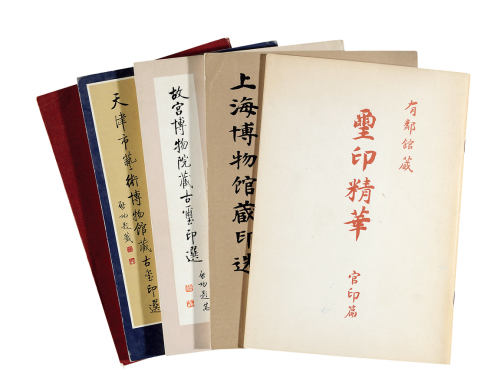 有鄰館蔵
璽印精華
官印篇
上海博物馆藏印选
故宫博物院藏古璽印選
啟功題簽
天津市藝術博物館藏古璽印選
啟功題簽